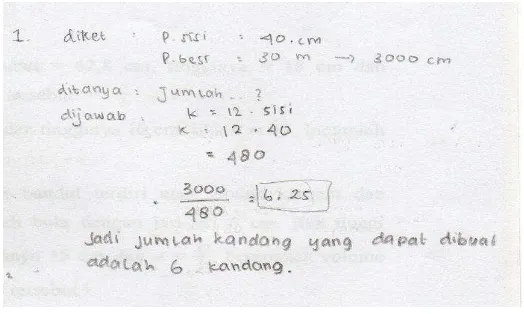 1. diket : P. sisi : 40. cm
P. besi : 30 m → 3000 cm
ditanya : Jumlah .. ?
dijawab : k = 12 . sisi
k : 12 . 40
= 480
3000 / 480 = 6.25
Jadi jumlah kandang yang dapat dibuat
adalah 6 kandang.